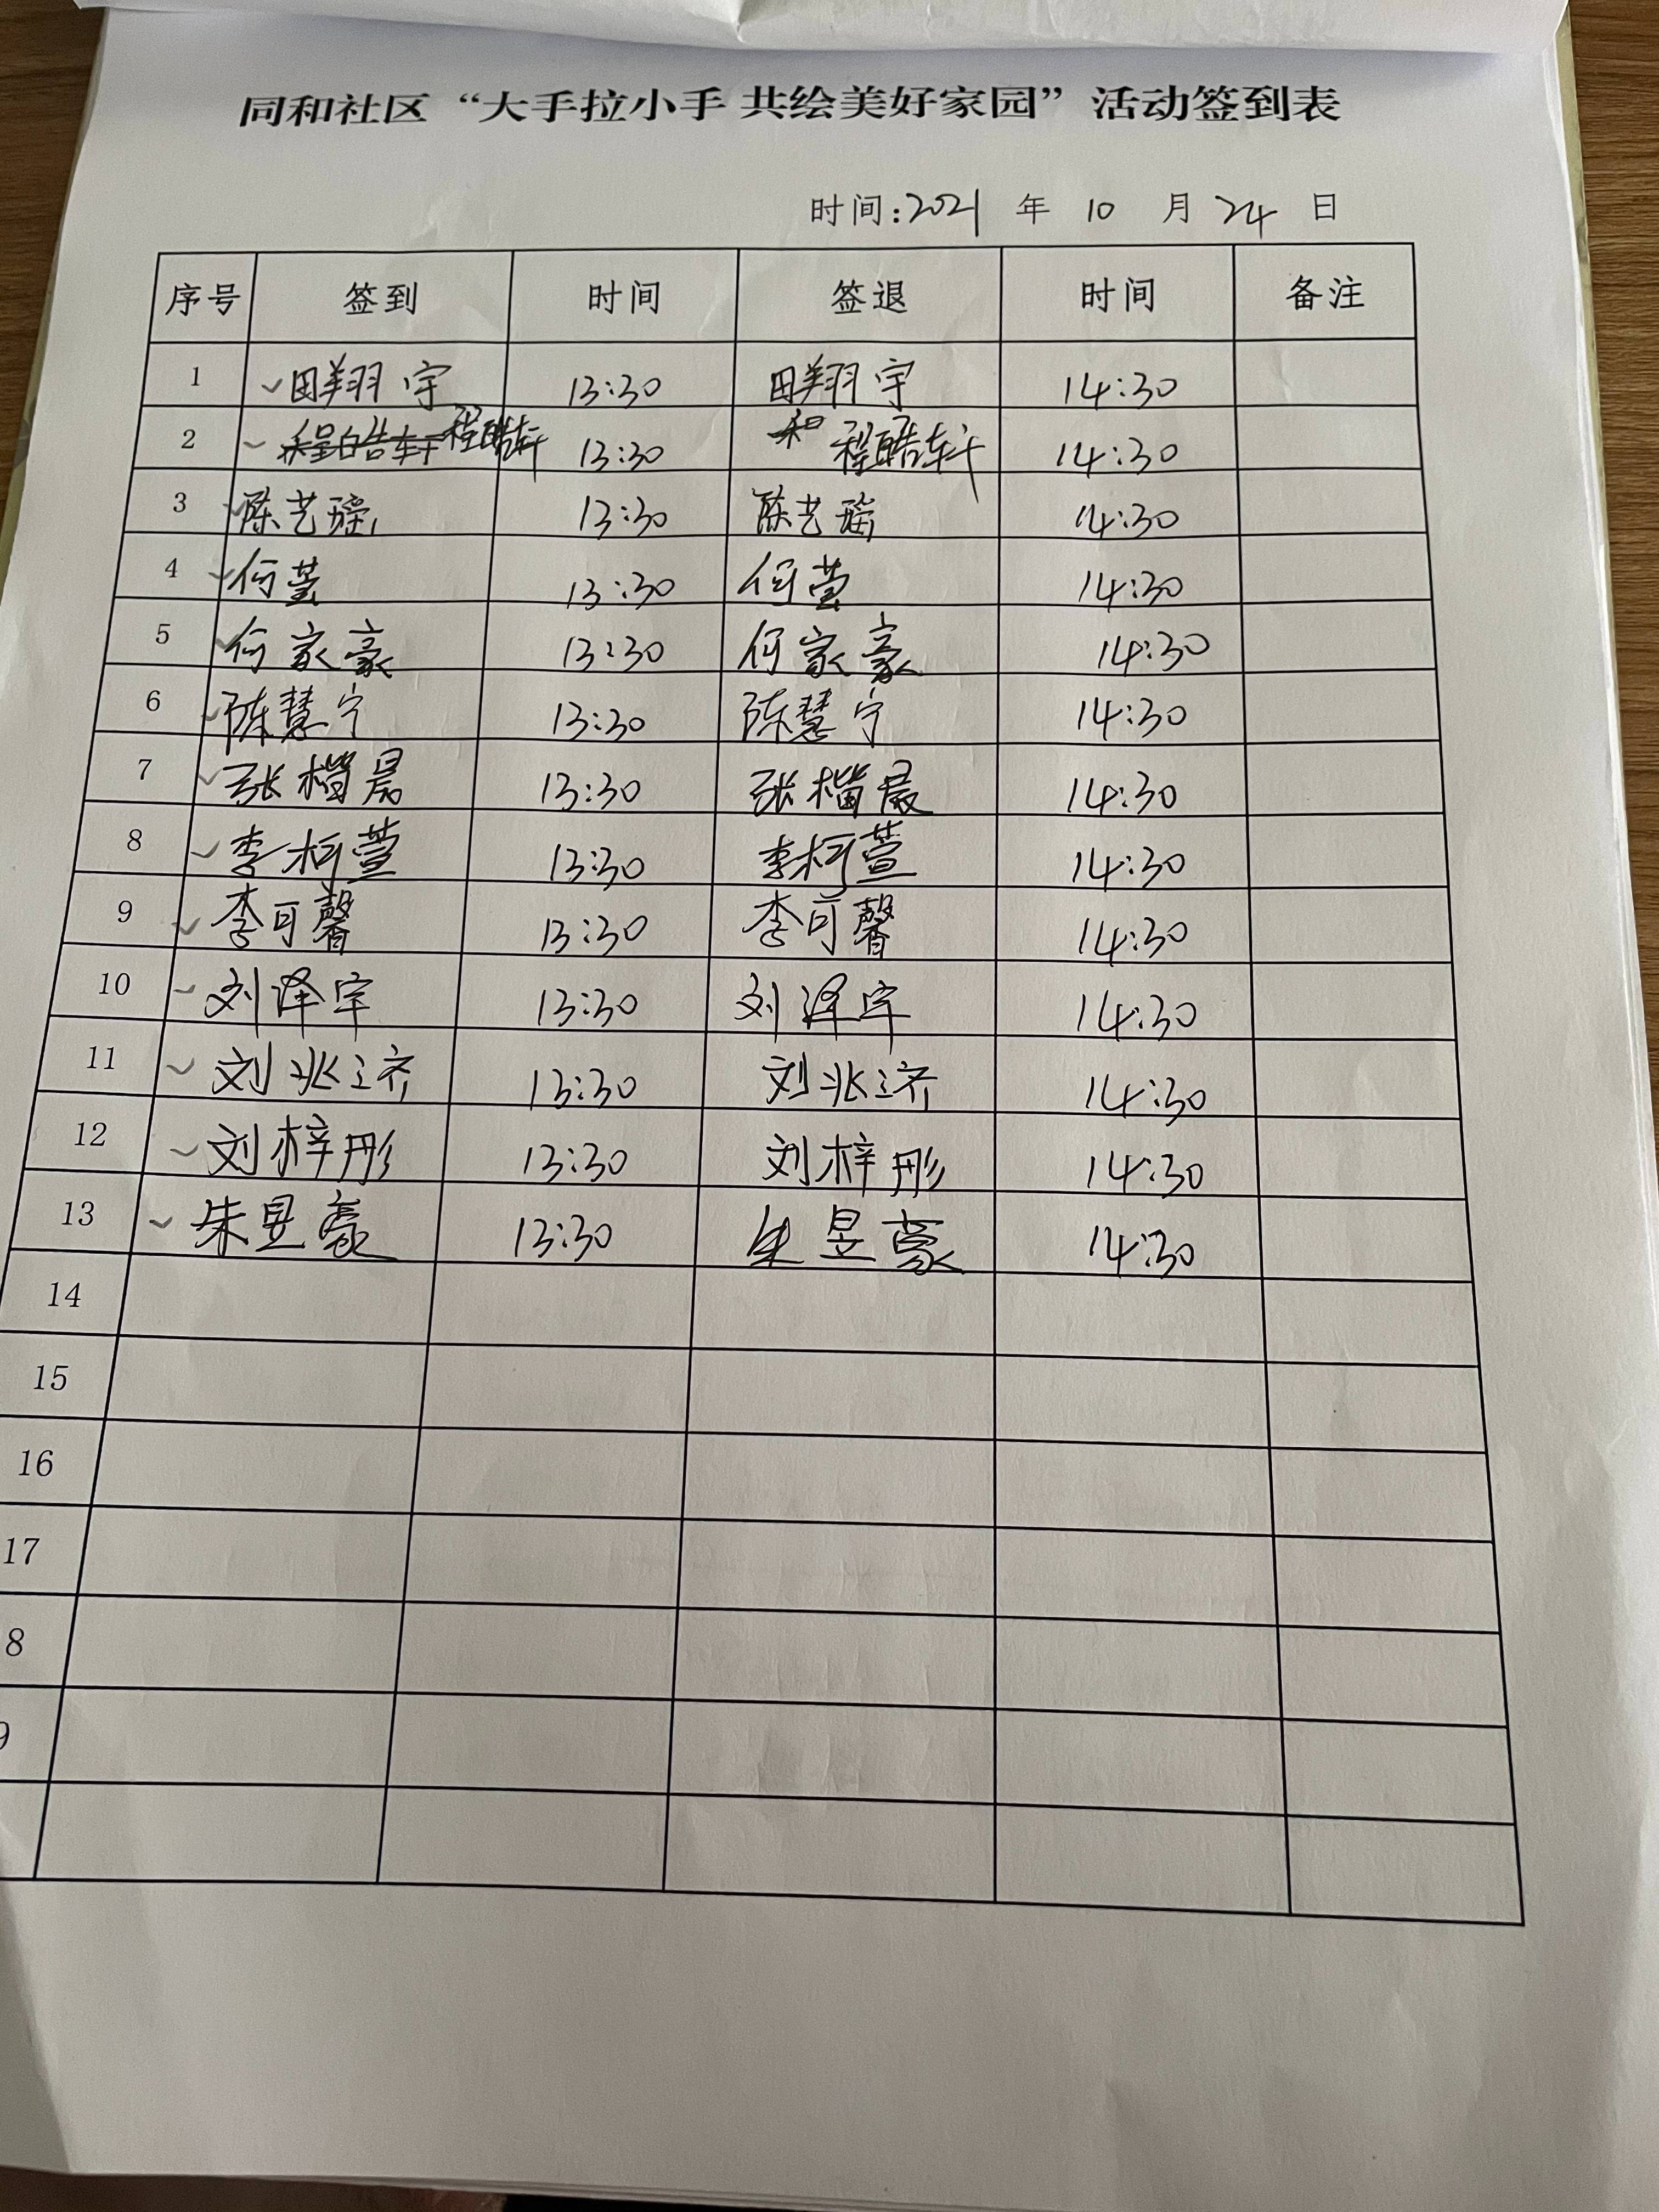 同和社区“大手拉小手 共绘美好家园”活动签到表
时间:2021 年 10 月 24 日
序号 签到 时间 签退 时间 备注
1 田翔宇 13:30 田翔宇 14:30
2 程皓轩 程皓轩 13:30 程皓轩 14:30
3 陈艺瑶 13:30 陈艺瑶 14:30
4 何莹 13:30 何莹 14:30
5 何家豪 13:30 何家豪 14:30
6 陈慧宁 13:30 陈慧宁 14:30
7 张楷晨 13:30 张楷晨 14:30
8 李柯萱 13:30 李柯萱 14:30
9 李可馨 13:30 李可馨 14:30
10 刘泽宇 13:30 刘泽宇 14:30
11 刘兆济 13:30 刘兆济 14:30
12 刘梓彤 13:30 刘梓彤 14:30
13 朱昱豪 13:30 朱昱豪 14:30
14
15
16
17
8
9